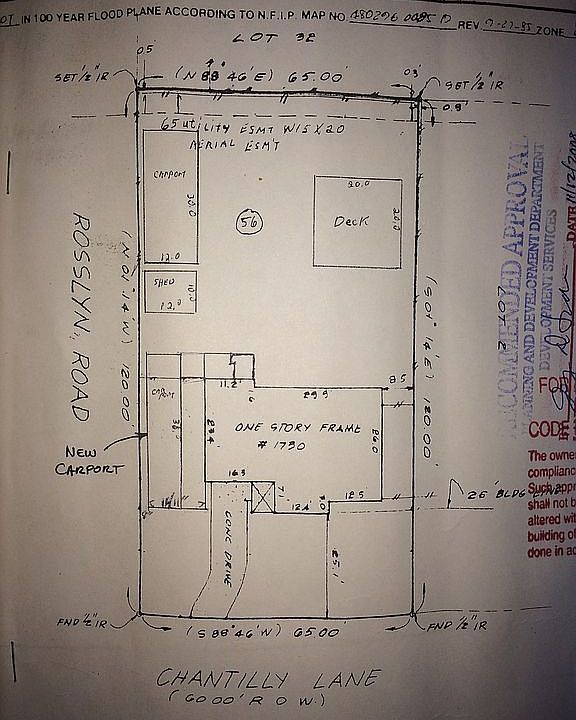 IN 100 YEAR FLOOD PLANE ACCORDING TO N.F.I.P. MAP NO. 480296 0095 D REV. 9-27-85 ZONE
LOT 32
0.5
0.3
SET 1/2" IR
(N 88° 46' E) 65.00'
SET 1/2" IR
0.9'
65 UTILITY ESMT W/5 X 20
AERIAL ESM'T
CARPORT
30.0
12.0
20.0
Deck
20.0
56
SHED
10.0
12.0
ROSSLYN ROAD
(N 01° 14' W) 120.00'
(S 01° 14' E) 120.00'
11.2
29.9
8.5
CARPORT
27.4
ONE STORY FRAME
# 1730
26.0
NEW
CARPORT
16.3
12.4
12.5
26' BLDG LINE
CONC DRIVE
25.1'
FND 1/2" IR
(S 88° 46' W) 65.00'
FND 1/2" IR
CHANTILLY LANE
(60.00' R O W.)
RECOMMENDED APPROVAL
PLANNING AND DEVELOPMENT DEPARTMENT
DEVELOPMENT SERVICES
DATE 11/12/2008
FOR
CODE
The owne
complianc
Such appr
shall not b
altered with
building of
done in ac